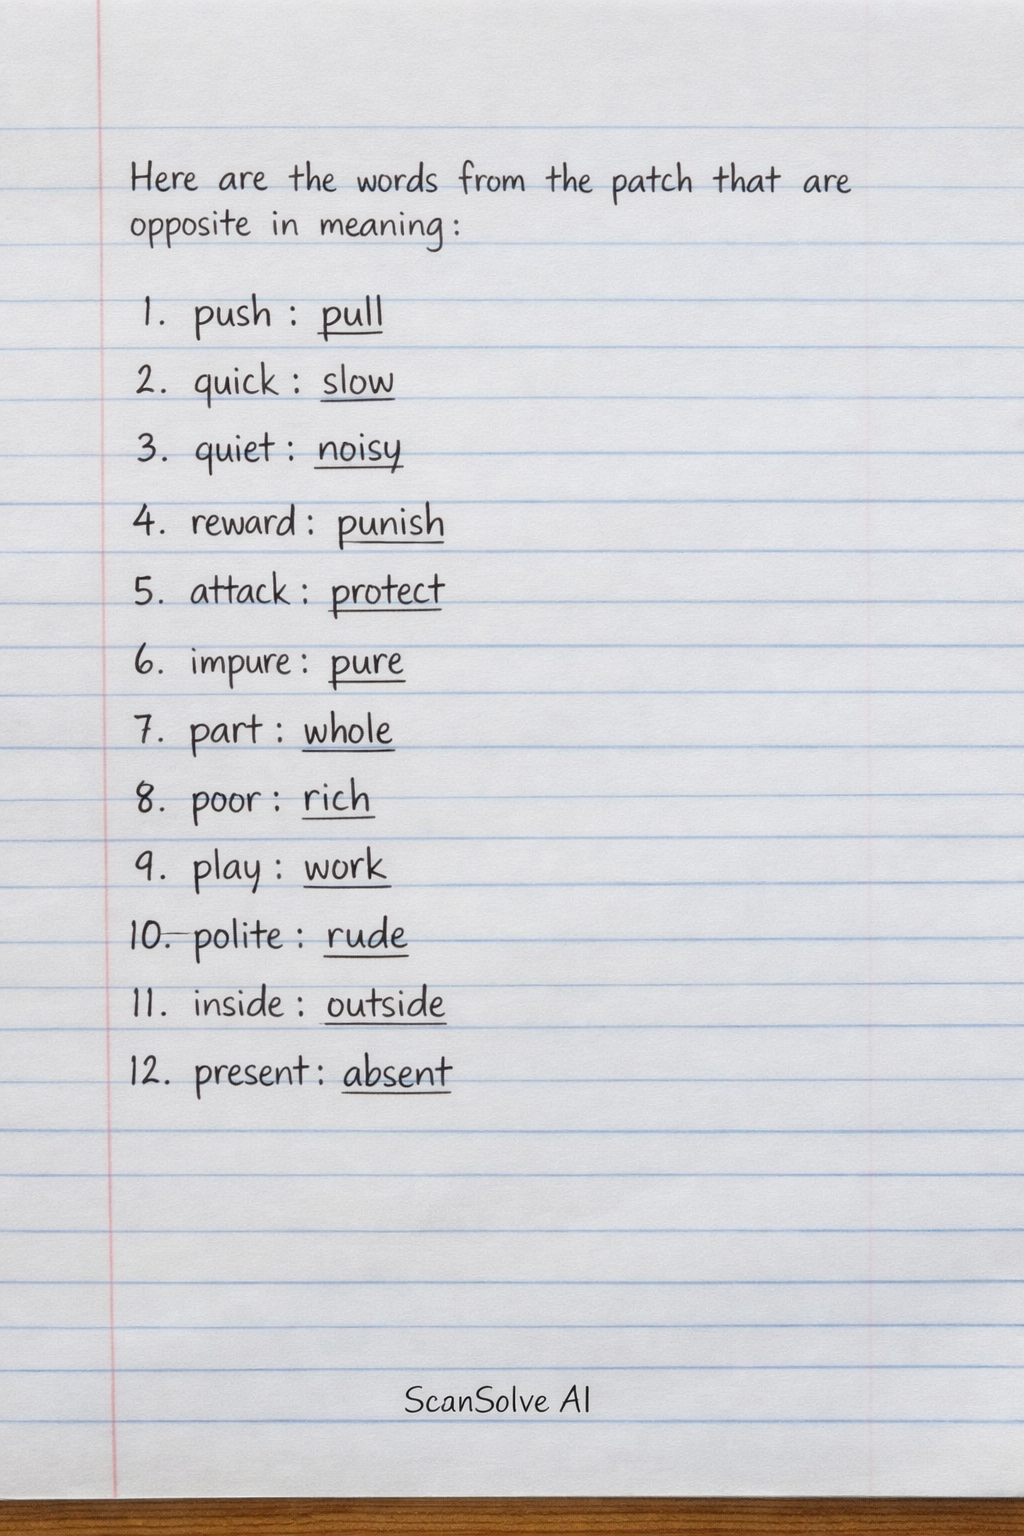 Here are the words from the patch that are
opposite in meaning:
1. push : pull
2. quick : slow
3. quiet : noisy
4. reward : punish
5. attack : protect
6. impure : pure
7. part : whole
8. poor : rich
9. play : work
10. polite : rude
11. inside : outside
12. present : absent
ScanSolve AI